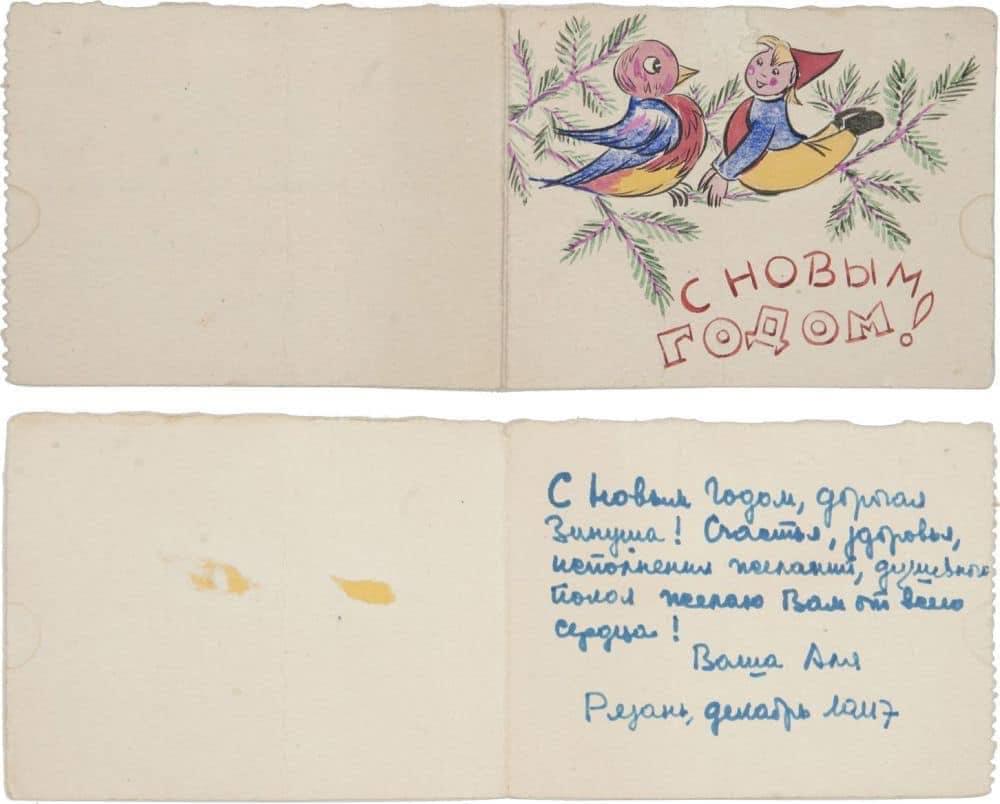 С НОВЫМ
ГОДОМ!
С Новым Годом, дорогая
Зинуша! Счастья, здоровья,
исполнения желаний, душевного
покоя желаю Вам от всего
сердца!
Ваша Аля
Рязань, декабрь 1947